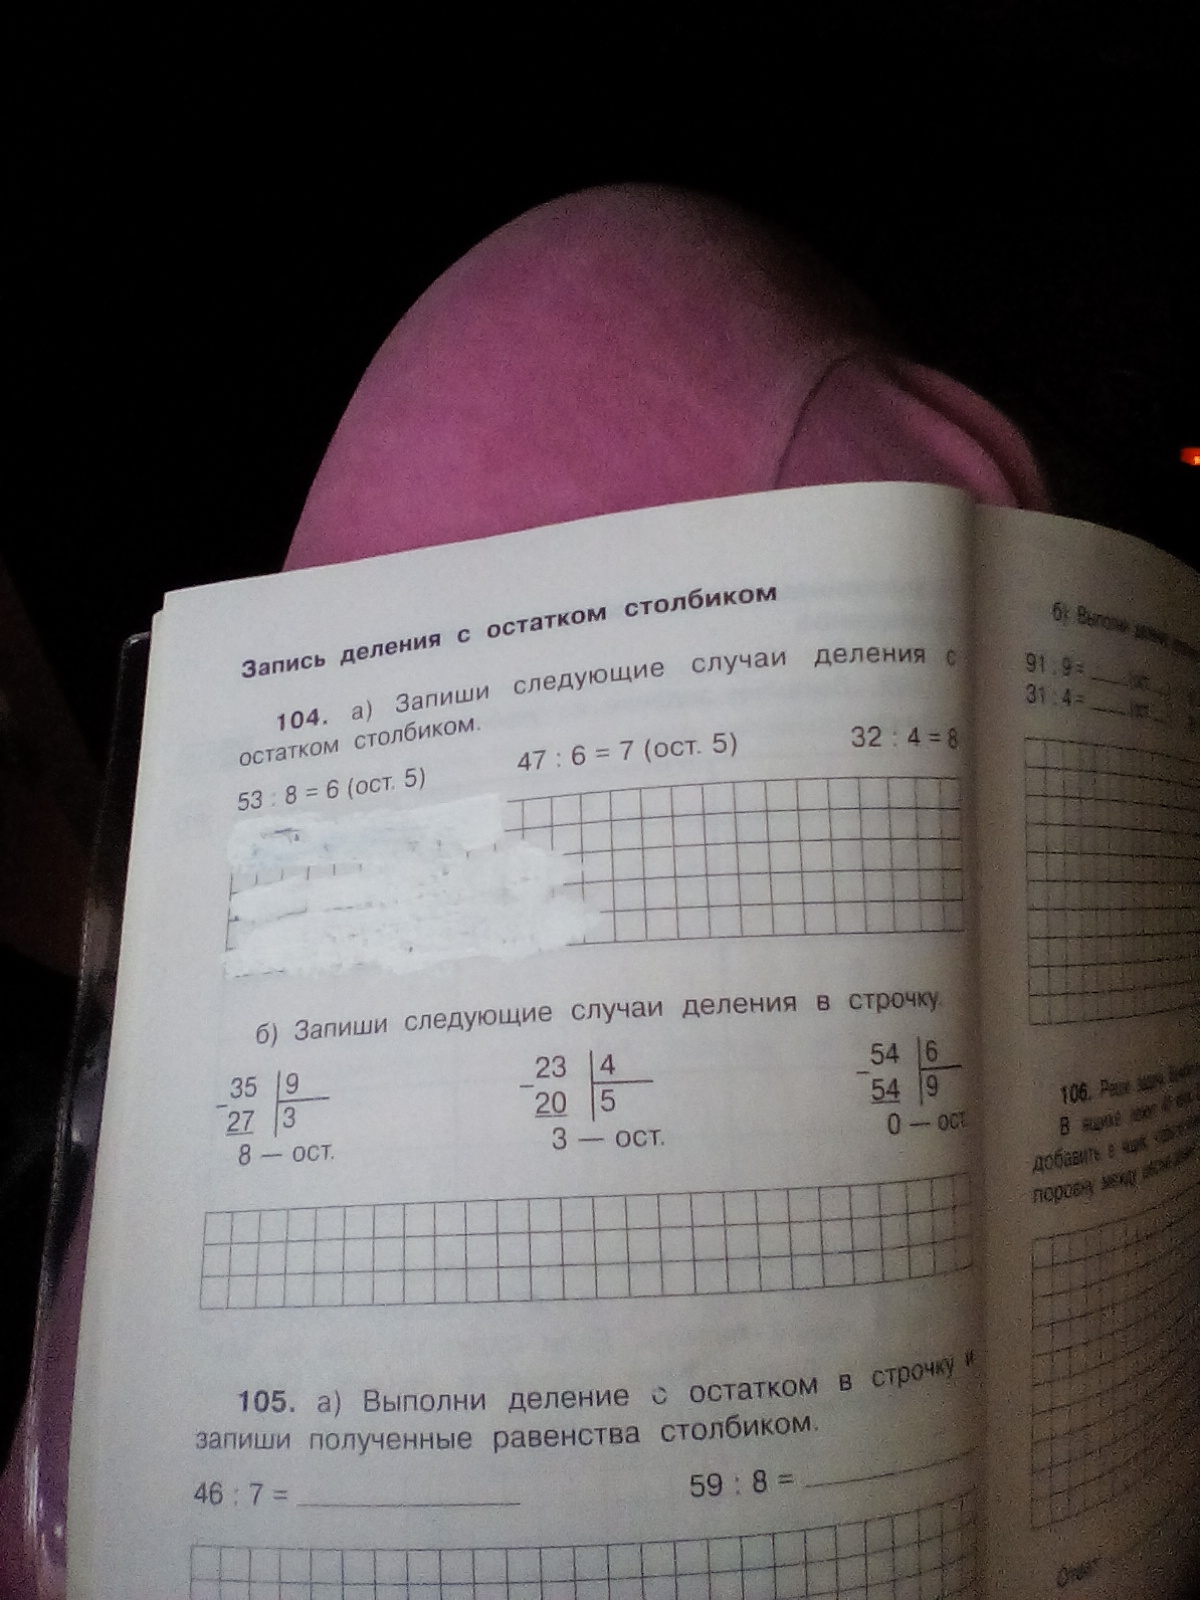 Запись деления с остатком столбиком
104. а) Запиши следующие случаи деления с
остатком столбиком.
53 : 8 = 6 (ост. 5) 47 : 6 = 7 (ост. 5) 32 : 4 = 8
б) Запиши следующие случаи деления в строчку.
35 | 9 23 | 4 54 | 6
− 27 | 3 − 20 | 5 − 54 | 9
8 — ост. 3 — ост. 0 — ост.
105. а) Выполни деление с остатком в строчку и
запиши полученные равенства столбиком.
46 : 7 = ____ 59 : 8 = ____
б) Выполни
91 : 9 = ____ (ост.
31 : 4 = ____ (ост.
106. Реши
В ящике
добавить в ящик
поровну между
Ответ